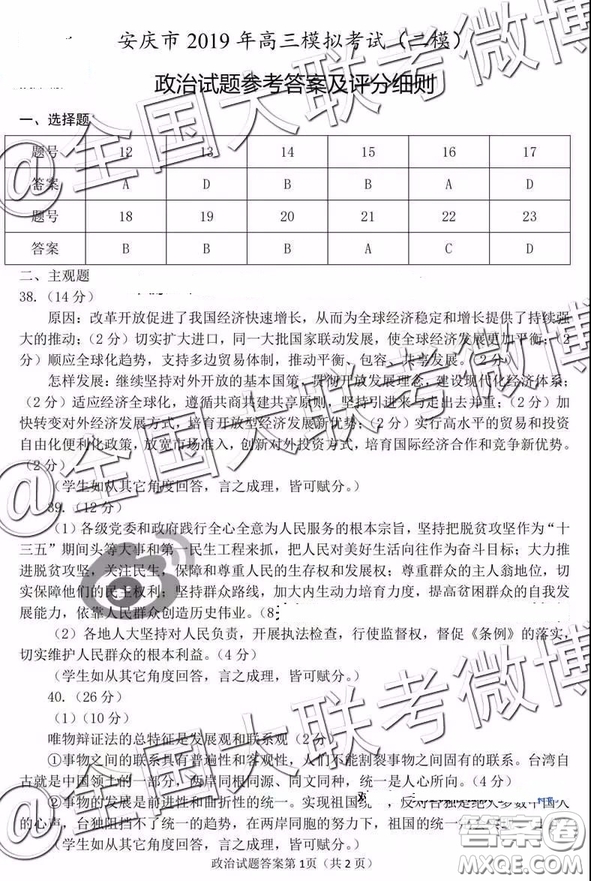 安庆市 2019 年高三模拟考试（二模）
政治试题参考答案及评分细则
一、选择题
题号 12 13 14 15 16 17
答案 A D B B A D
题号 18 19 20 21 22 23
答案 B B B A C D
二、主观题
38.（14 分）
原因：改革开放促进了我国经济快速增长，从而为全球经济稳定和增长提供了持续强
大的推动；（2 分）切实扩大进口，同一大批国家联动发展，使全球经济发展更加平衡；（2
分）顺应全球化趋势，支持多边贸易体制，推动平衡、包容、共享发展。（2 分）
怎样发展：继续坚持对外开放的基本国策，贯彻开放发展理念，建设现代化经济体系；
（2 分）适应经济全球化，遵循共商共建共享原则，坚持引进来与走出去并重；（2 分）加
快转变对外经济发展方式，培育开放型经济发展新优势；（2 分）实行高水平的贸易和投资
自由化便利化政策，放宽市场准入，创新对外投资方式，培育国际经济合作和竞争新优势。
（2 分）
（学生如从其它角度回答，言之成理，皆可赋分。）
39.（12 分）
（1）各级党委和政府践行全心全意为人民服务的根本宗旨，坚持把脱贫攻坚作为“十
三五”期间头等大事和第一民生工程来抓，把人民对美好生活向往作为奋斗目标；大力推
进脱贫攻坚，关注民生，保障和尊重人民的生存权和发展权；尊重群众的主人翁地位，切
实保障他们的民主权利；坚持群众路线，加大内生动力培育力度，提高贫困群众的自我发
展能力，依靠人民群众创造历史伟业。（8
（2）各地人大坚持对人民负责，开展执法检查，行使监督权，督促《条例》的落实，
切实维护人民群众的根本利益。（4 分）
（学生如从其它角度回答，言之成理，皆可赋分。）
40.（26 分）
（1）（10 分）
唯物辩证法的总特征是发展观和联系观（2 分）
①事物之间的联系具有普遍性和客观性，人们不能割裂事物之间固有的联系。台湾自
古就是中国领土的一部分，两岸同根同源、同文同种，统一是人心所向。（4 分）
②事物的发展是前进性和曲折性的统一。实现祖国统一，反对台独是绝大多数中国人
的心声，台独阻挡不了统一的趋势，在两岸同胞的努力下，祖国的统一
（学生如从其它角度回答，言之成理，皆可赋分。）
政治试题答案第 1页（共 2 页）
@全国大联考微博
@全国大联考微博
答案圈
MXQE.COM